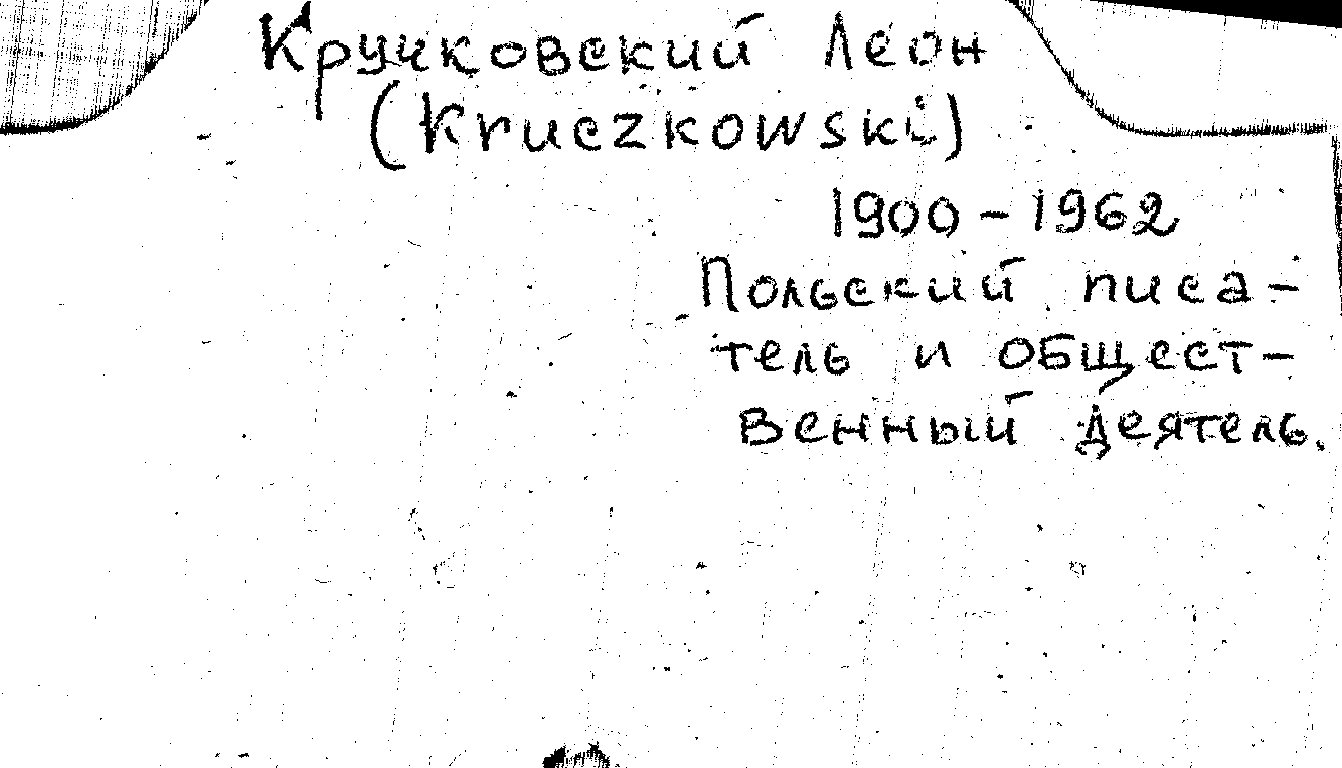 Кручковский Леон
(Kruczkowski)
1900 - 1962
Польский писа-
тель и общест-
венный деятель.